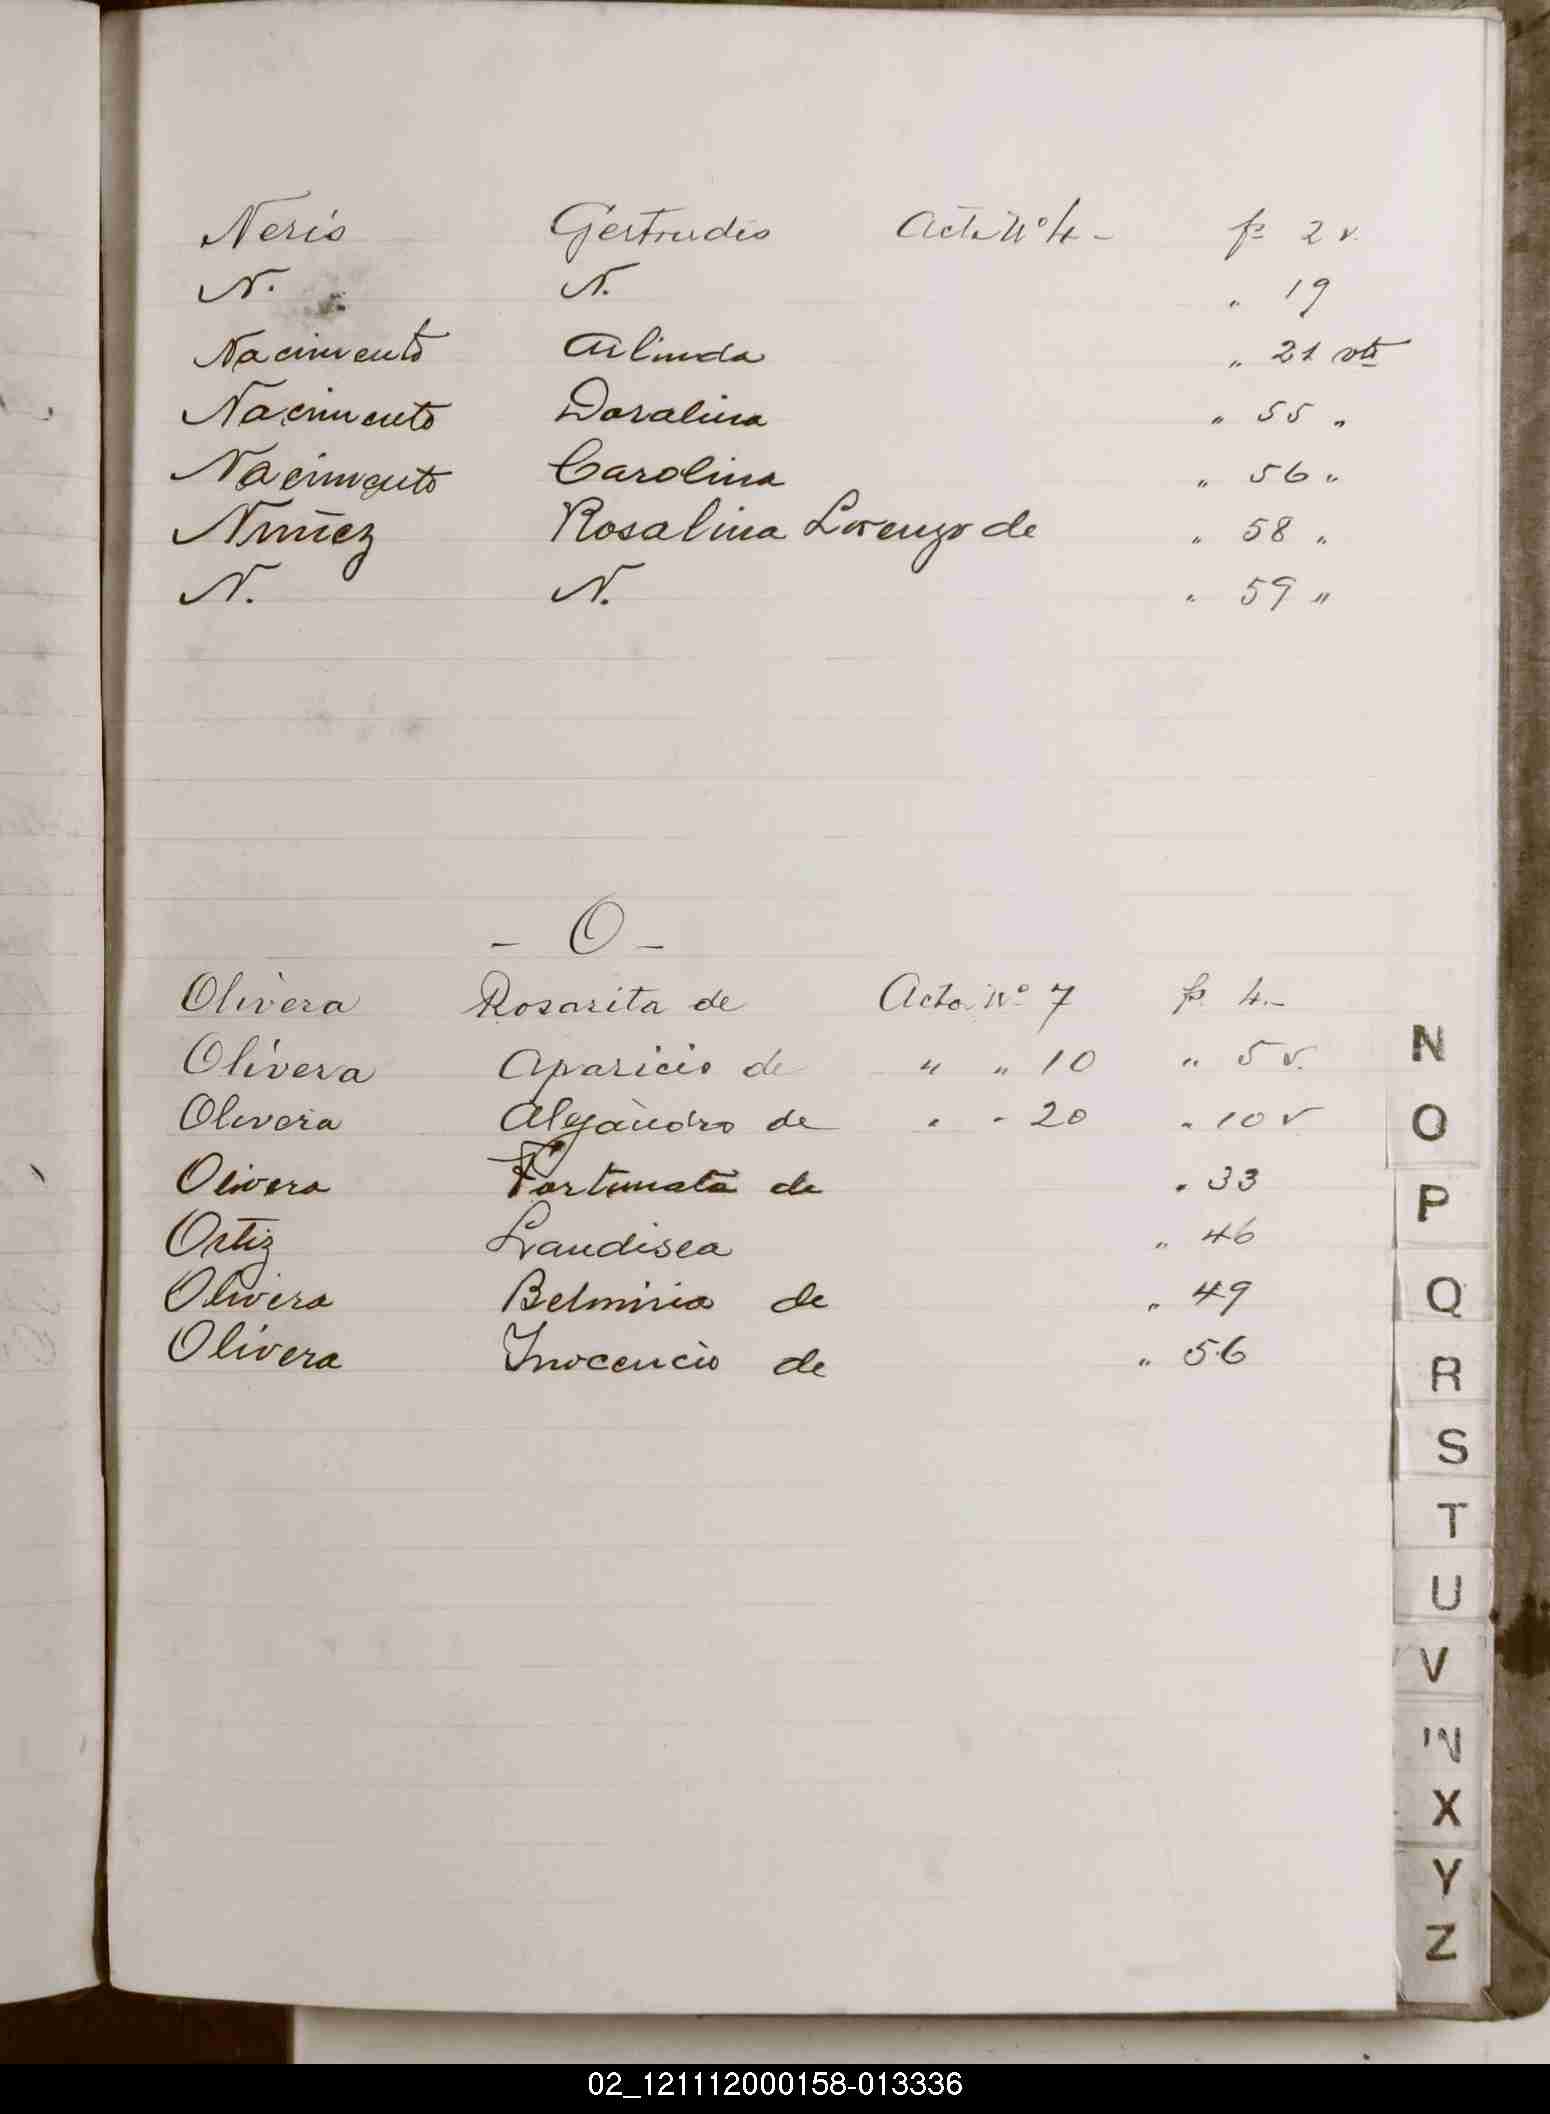 Neris Gertrudis Acta Nº 4 - fs 2 v.
N. N. " 19
Nacimento Alinda " 21 vta
Nacimento Doralina " 55 "
Nacimento Carolina " 56 "
Nuñez Rosalina Lorenzo de " 58 "
N. N. " 59 "
- O -
Olivera Rosarita de Acta Nº 7 fs. 4.-
Olivera Aparicio de " " 10 " 5 v.
Olivera Alejandro de " " 20 " 10 v
Olivera Fortunata de " 33
Ortiz Landisea " 46
Olivera Belmiria de " 49
Olivera Inocencio de " 56
N
O
P
Q
R
S
T
U
V
W
X
Y
Z
02_121112000158-013336